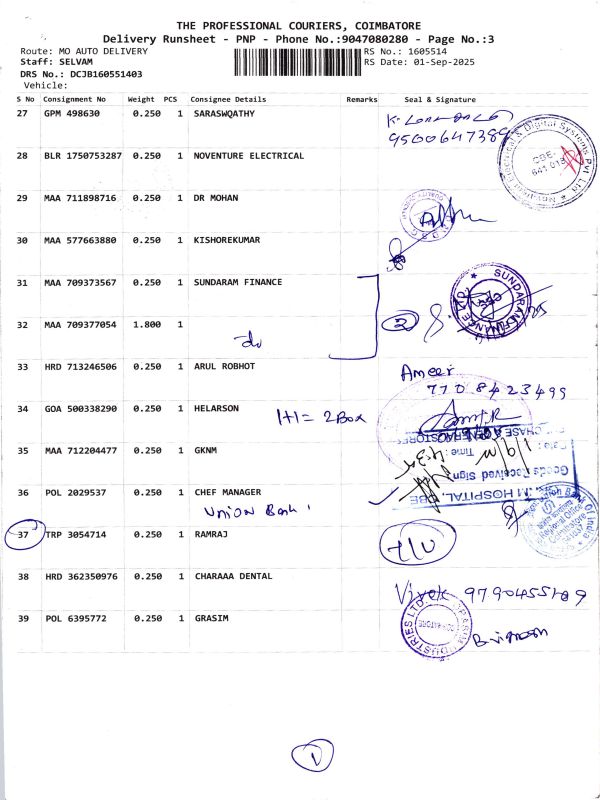 THE PROFESSIONAL COURIERS, COIMBATORE
Delivery Runsheet - PNP - Phone No.:9047080280 - Page No.:3
Route: MO AUTO DELIVERY RS No.: 1605514
Staff: SELVAM RS Date: 01-Sep-2025
DRS No.: DCJB160551403
Vehicle:
S No Consignment No Weight PCS Consignee Details Remarks Seal & Signature
27 GPM 498630 0.250 1 SARASWQATHY
9500647389
28 BLR 1750753287 0.250 1 NOVENTURE ELECTRICAL
CBE-
641 018
29 MAA 711898716 0.250 1 DR MOHAN
30 MAA 577663880 0.250 1 KISHOREKUMAR
31 MAA 709373567 0.250 1 SUNDARAM FINANCE
SUNDARAM FINANCE
32 MAA 709377054 1.800 1
do
2
33 HRD 713246506 0.250 1 ARUL ROBHOT
Ameer
7708423499
34 GOA 500338290 0.250 1 HELARSON
1+1= 2Box
35 MAA 712204477 0.250 1 GKNM
Goods Received Sign
Date: 1/9/ Time:
M HOSPITAL, CBE
36 POL 2029537 0.250 1 CHEF MANAGER
Union Bank
37 TRP 3054714 0.250 1 RAMRAJ
38 HRD 362350976 0.250 1 CHARAAA DENTAL
Vivek 9790455189
39 POL 6395772 0.250 1 GRASIM
GRASIM INDUSTRIES LTD.
1